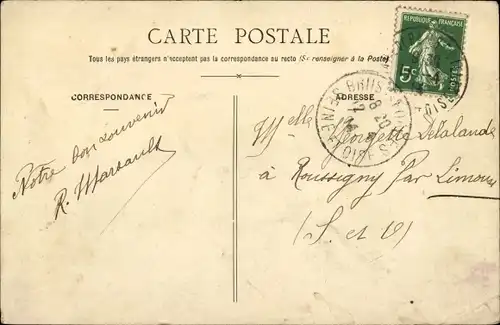 CARTE POSTALE
Tous les pays étrangers n'acceptent pas la correspondance au recto (Se renseigner à la Poste)
CORRESPONDANCE
ADRESSE
REPUBLIQUE FRANÇAISE
5c
POSTES
BRIIS
SEINE
OISE
Notre bon souvenir
R. Marsault
Melle Georgette Delalande
à Roussigny Par Limours
(S. et O)